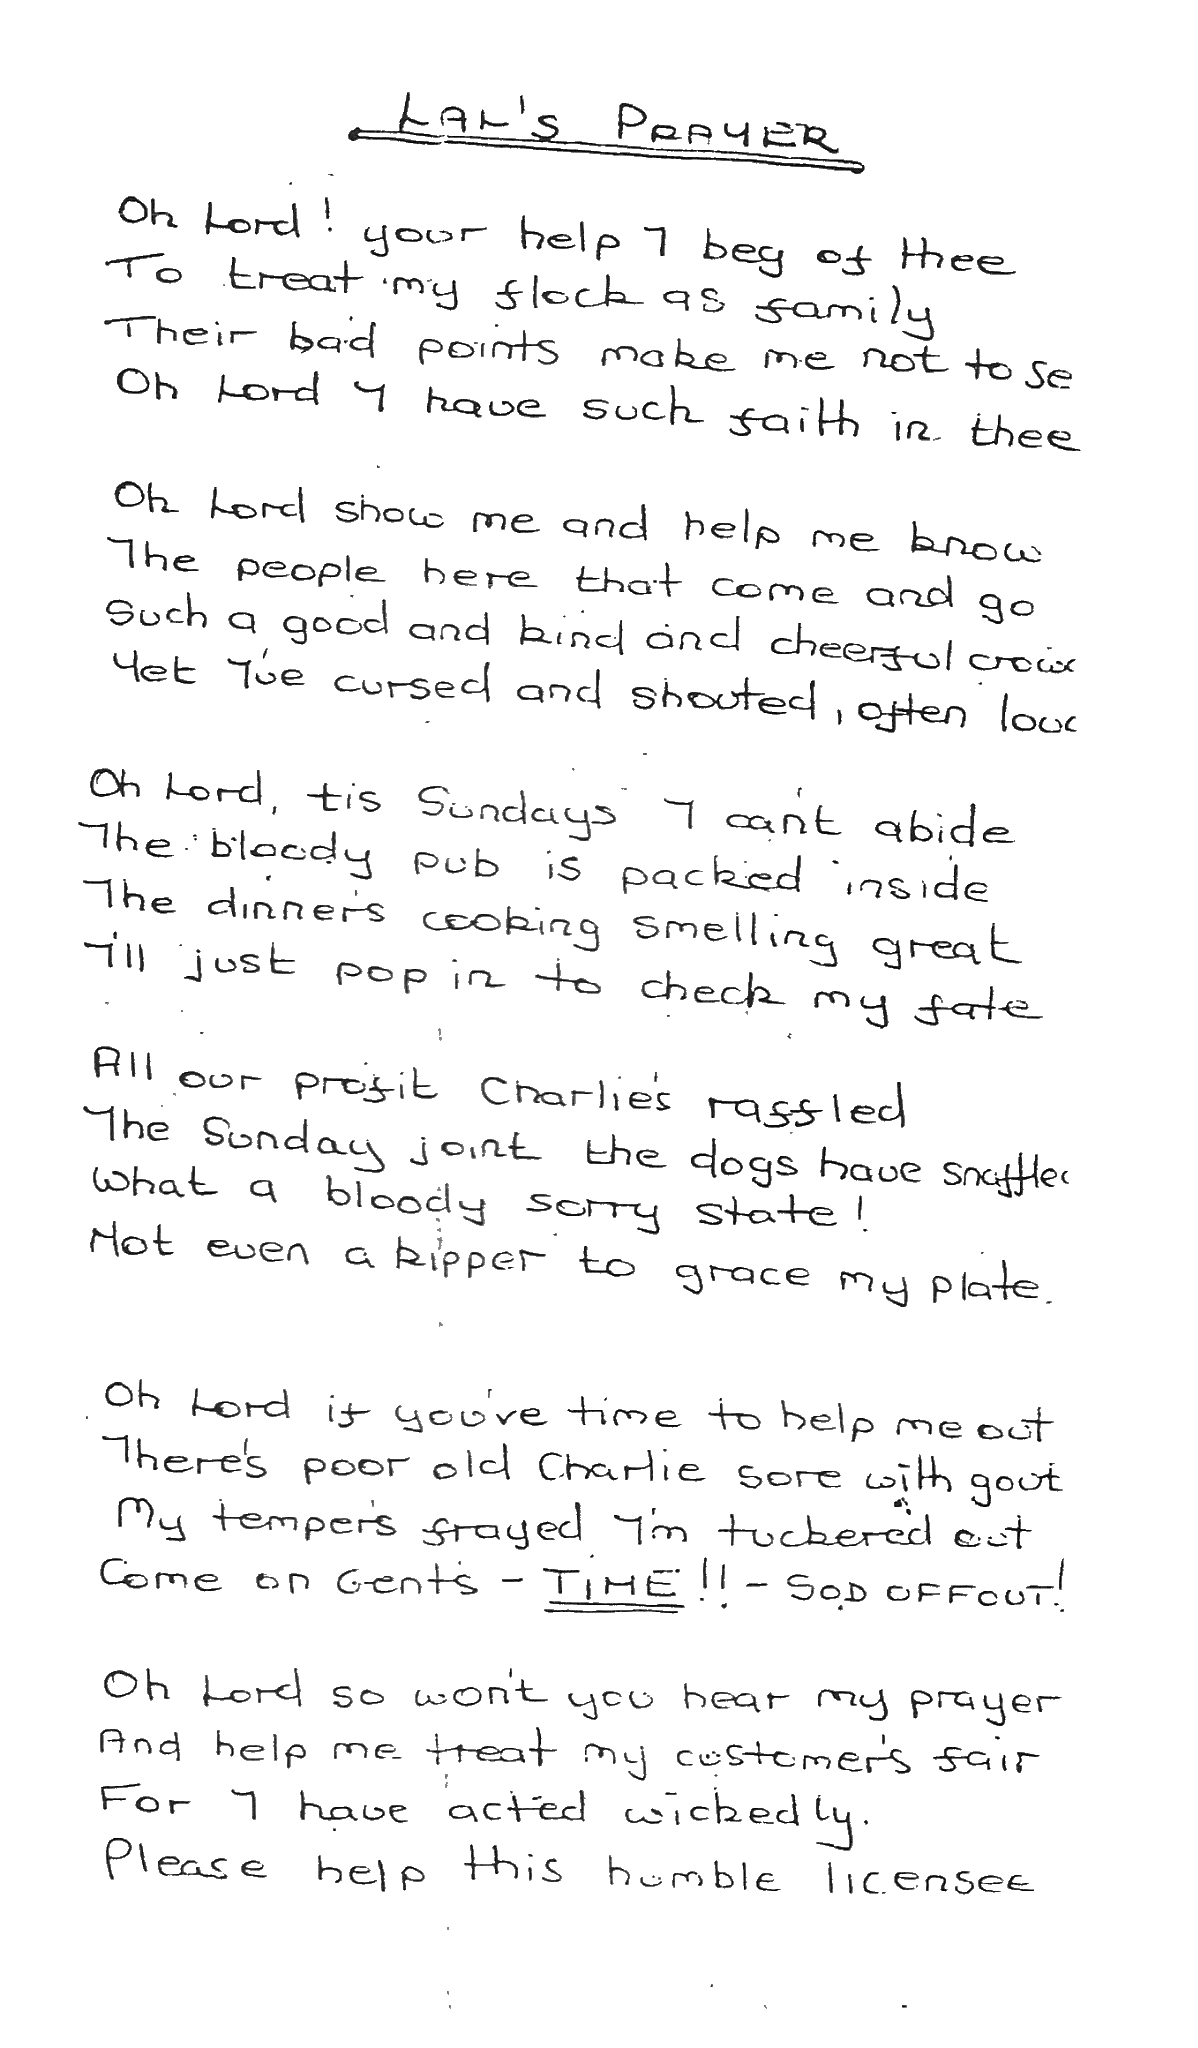 LAL'S PRAYER
Oh Lord! your help I beg of thee
To treat my flock as family
Their bad points make me not to se
Oh Lord I have such faith in thee
Oh Lord show me and help me know
The people here that come and go
Such a good and kind and cheerful crow
Yet I've cursed and shouted, often lou
Oh Lord, tis Sundays I can't abide
The bloody pub is packed inside
The dinner's cooking smelling great
I'll just pop in to check my fate
All our profit Charlie's raffled
The Sunday joint the dogs have snaffle
What a bloody sorry state!
Not even a kipper to grace my plate.
Oh Lord if you've time to help me out
There's poor old Charlie sore with gout
My temper's frayed I'm tuckered out
Come on Gent's - TIME!! - SOD OFF OUT!
Oh Lord so won't you hear my prayer
And help me treat my customer's fair
For I have acted wickedly.
Please help this humble licensee